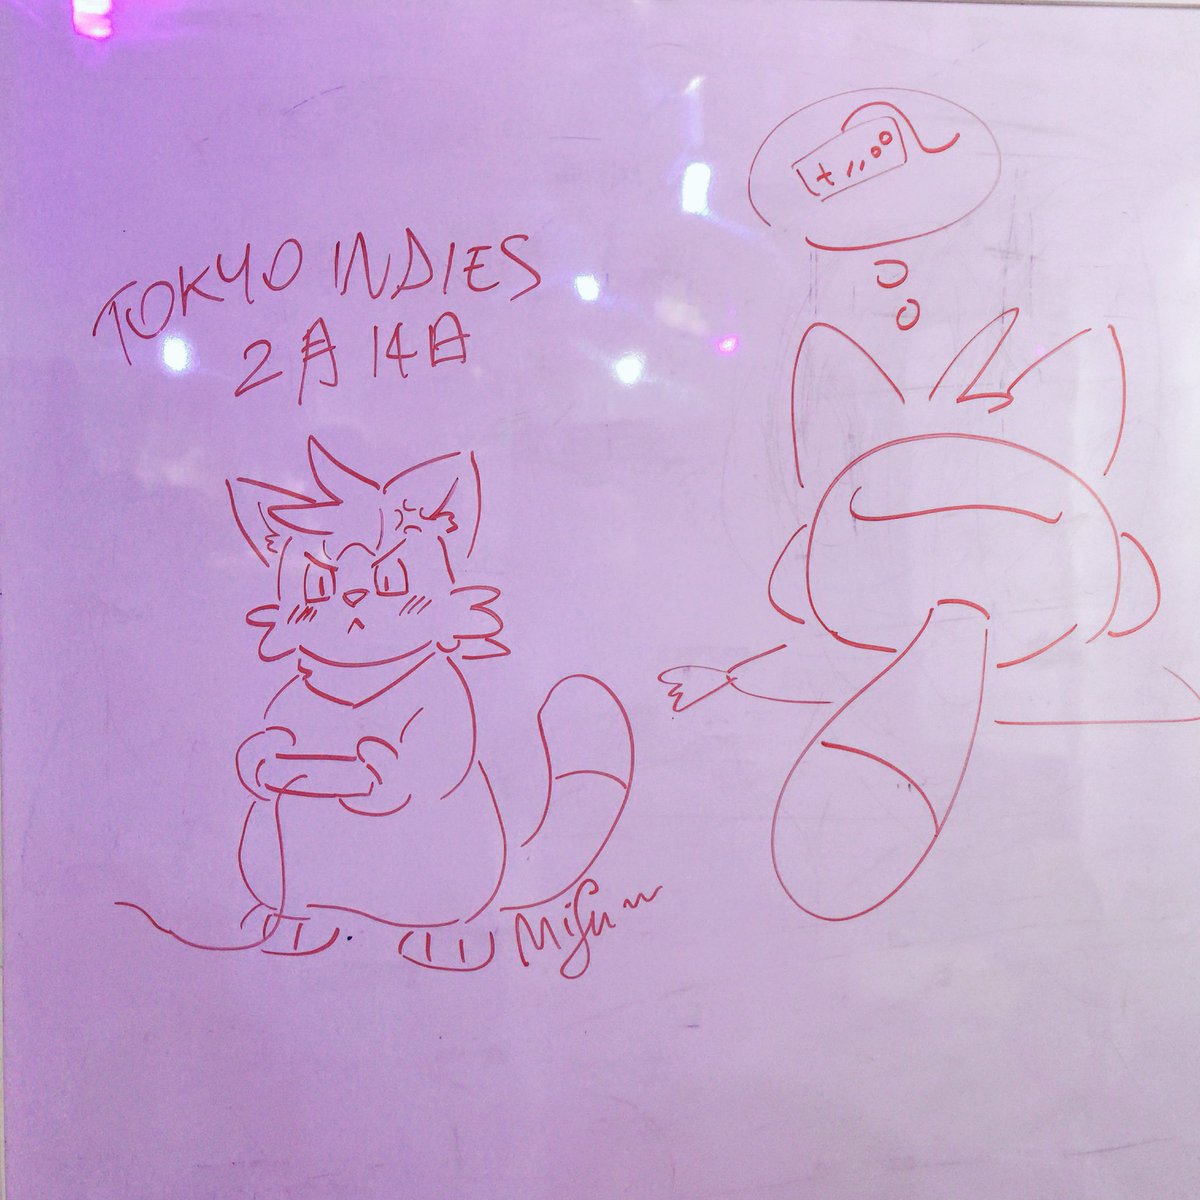 TOKYO INDIES
2月14日
Mifu~